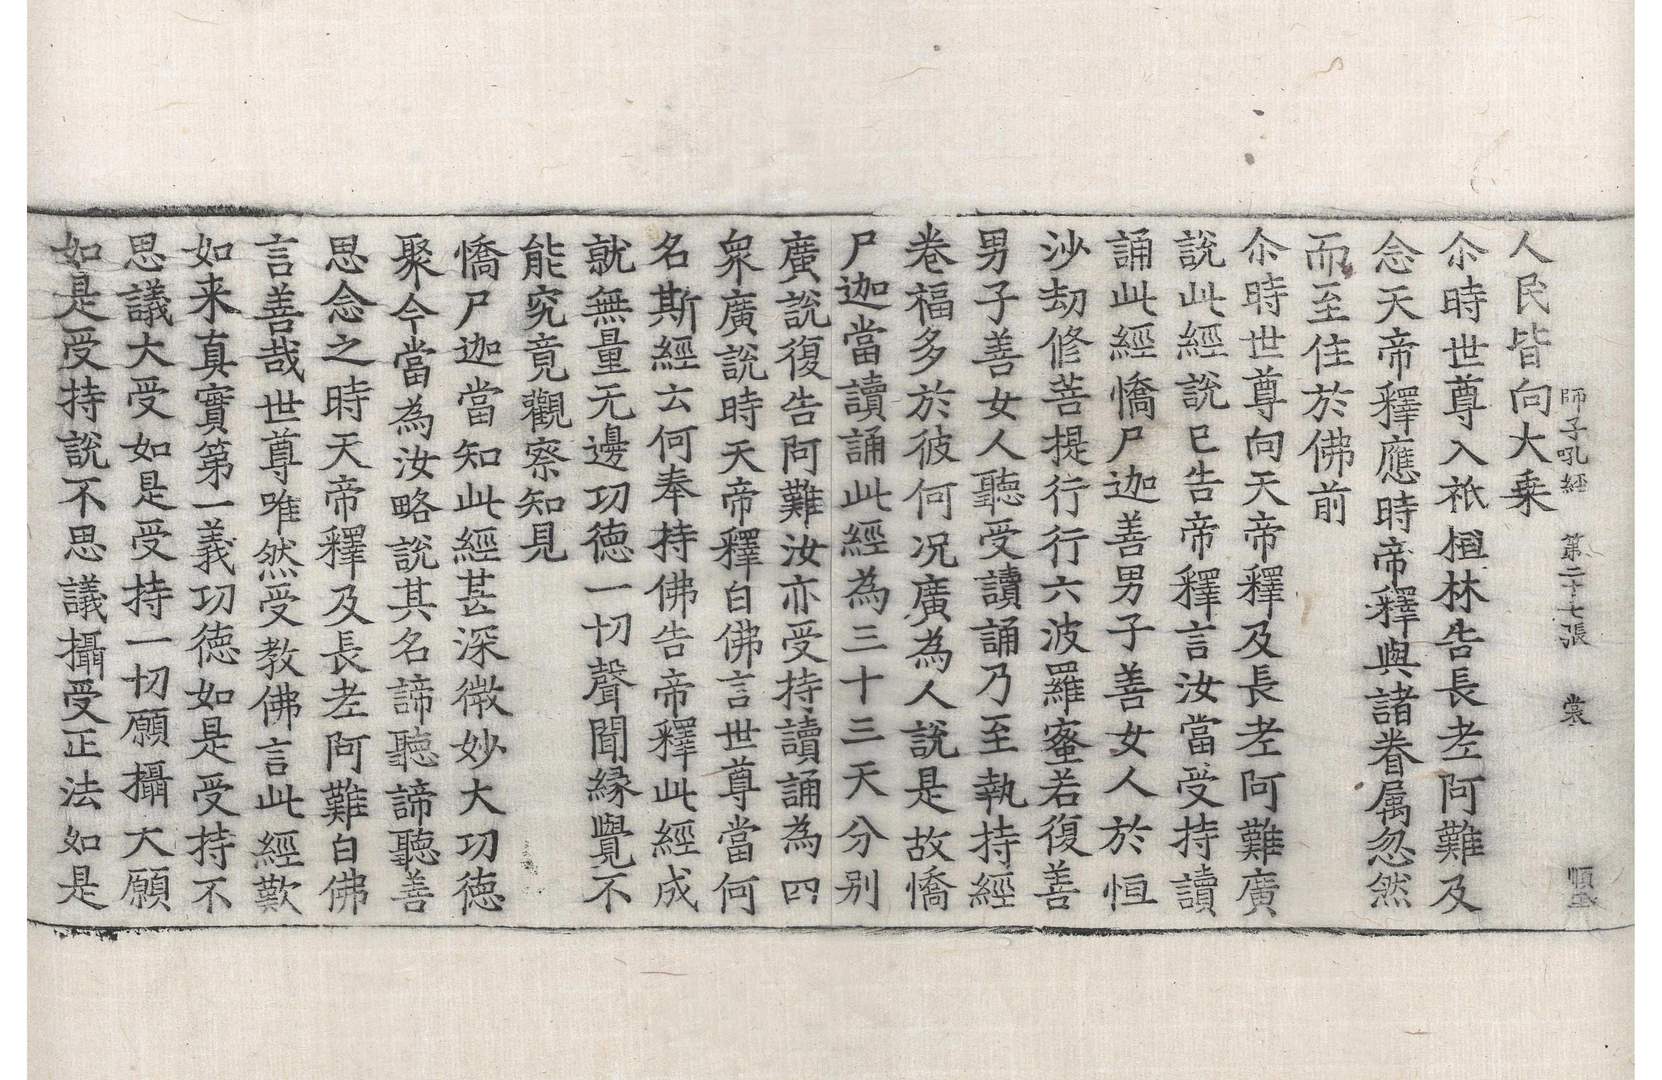 師子吼經 第二十七張 裳 順
人民皆向大乗
尒時世尊入祇桓林告長老阿難及
念天帝釋應時帝釋與諸眷属忽然
而至住於佛前
尒時世尊向天帝釋及長老阿難廣
說此經說已告帝釋言汝當受持讀
誦此經憍尸迦善男子善女人於恒
沙劫修菩提行行六波羅蜜若復善
男子善女人聽受讀誦乃至執持經
卷福多於彼何况廣為人說是故憍
尸迦當讀誦此經為三十三天分别
廣說復告阿難汝亦受持讀誦為四
衆廣說時天帝釋白佛言世尊當何
名斯經云何奉持佛告帝釋此經成
就無量无邊功徳一切聲聞緣覺不
能究竟觀察知見
憍尸迦當知此經甚深微妙大功徳
聚今當為汝略說其名諦聽諦聽善
思念之時天帝釋及長老阿難白佛
言善哉世尊唯然受教佛言此經歎
如来真實第一義功徳如是受持不
思議大受如是受持一切願攝大願
如是受持說不思議攝受正法如是